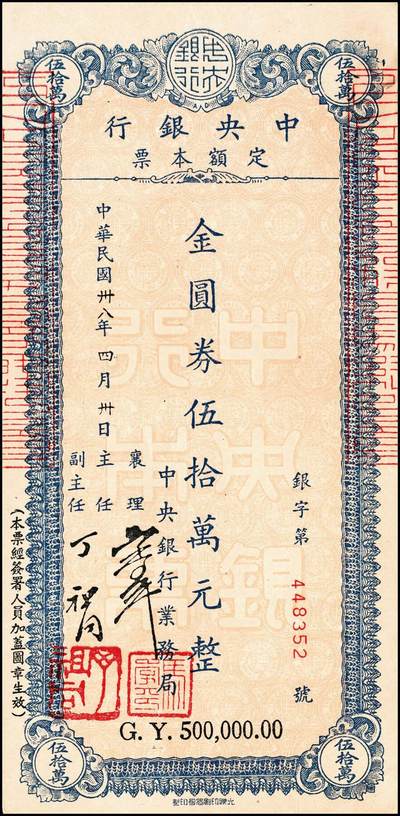 中央銀行
伍拾萬
伍拾萬
中央銀行
定額本票
銀字第 448352 號
金圓券伍拾萬元整
中央銀行業務局
襄理
主任
副主任
丁
中華民國卅八年四月卅日
(本票經簽署人員加蓋圖章生效)
G. Y. 500,000.00
伍拾萬
伍拾萬